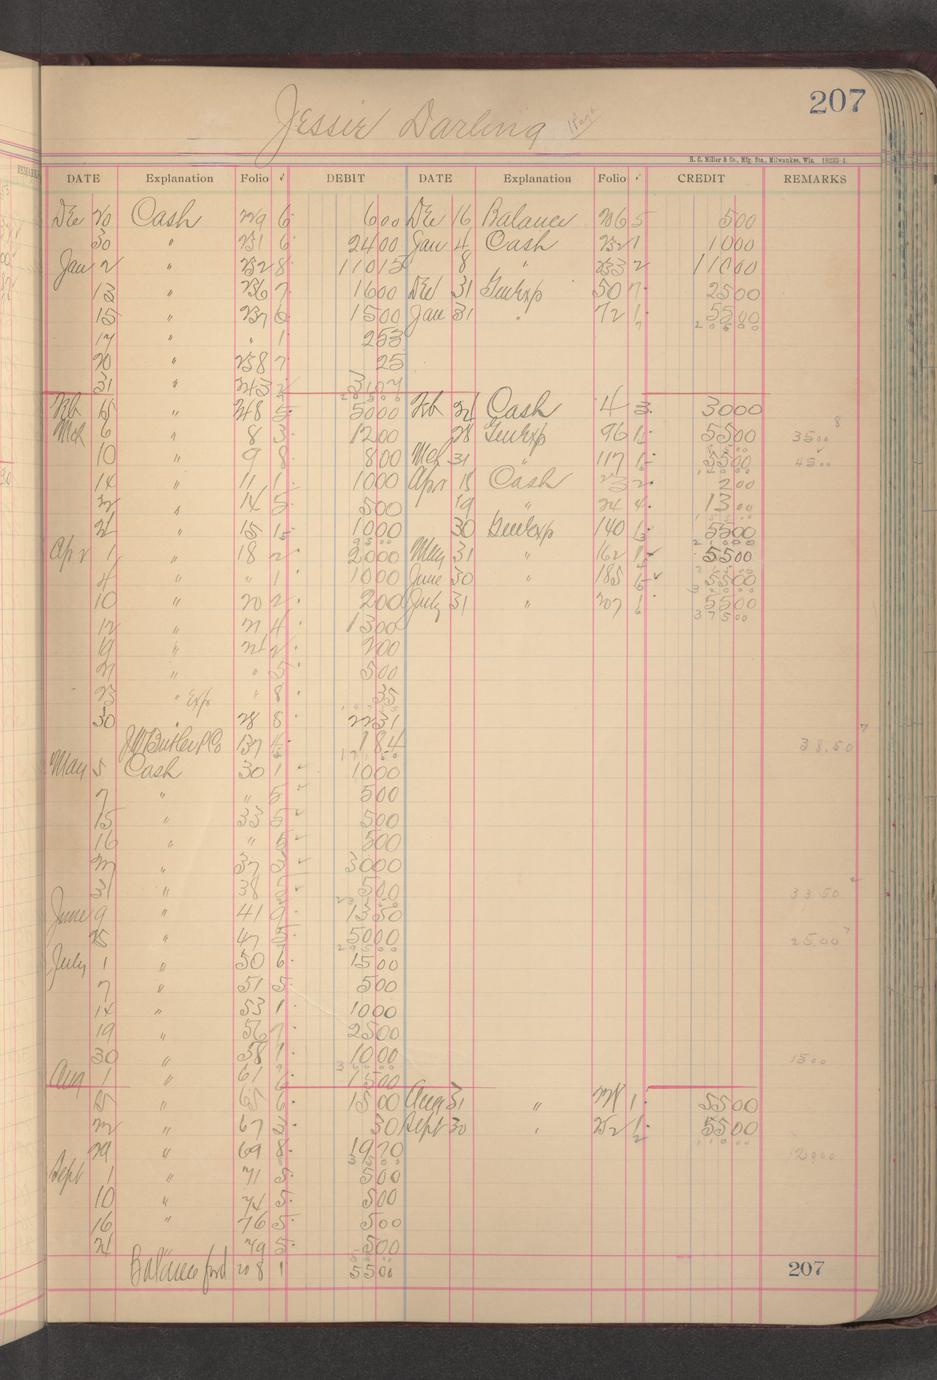 207
Jessie Darling
H. C. Miller & Co., Mfg. Sta., Milwaukee, Wis.
DATE Explanation Folio ✓ DEBIT DATE Explanation Folio ✓ CREDIT REMARKS
Dec 20 Cash 229 6 600 Dec 16 Balance 226 5 500
30 " 231 6 2400 Jan 4 Cash 232 1 1000
Jan 2 " 232 8 11015 8 " 233 2 11000
13 " 236 7 1600 Dec 31 Gen Exp 50 7 2500
15 " 237 6 1500 Jan 31 " 72 1 5500
17 " " 1 253
20 " 238 7 25
31 " 243 2 3107
Feb 15 " 248 5 5000 Feb 21 Cash 4 3 3000
Mch 6 " 8 3 1200 28 Gen Exp 96 1 5500 3500
10 " 9 8 800 Mch 31 " 117 1 5500 4500
14 " 11 1 1000 Apr 18 Cash 23 2 200
" 14 5 500 19 " 24 4 1300
" 15 1000 30 Gen Exp 140 5500
Apr 1 " 18 2 2000 May 31 " 162 5500
4 " " 1 1000 June 30 " 185 5500
10 " 20 2 200 July 31 " 207 5500
12 " 21 4 1300 3 7 5 00
19 " 24 2 200
21 " " 5 500
23 " Exp " 8 35
30 " 28 8 2231
J W Butler P Co 137 184 38.50
May 5 Cash 30 1 1000
7 " " 5 500
15 " 33 5 500
16 " " 5 500
27 " 37 3 3000
31 " 38 5 500 33.50
June 9 " 41 9 1350
25 " 47 5 5000 25.00
July 1 " 50 6 1500
7 " 51 5 500
14 " 53 1 1000
19 " 56 7 2500
30 " 58 1 1000 1500
Aug 1 " 61 6 1500
15 " 65 6 1500 Aug 31 " 228 1 5500
22 " 67 3 30 Sept 30 " 252 5500
29 " 69 8 1970 12000
Sept 1 " 71 5 500
10 " 74 5 500
16 " 76 5 500
24 " 79 5 500
Balance ford 208 1 5500 207